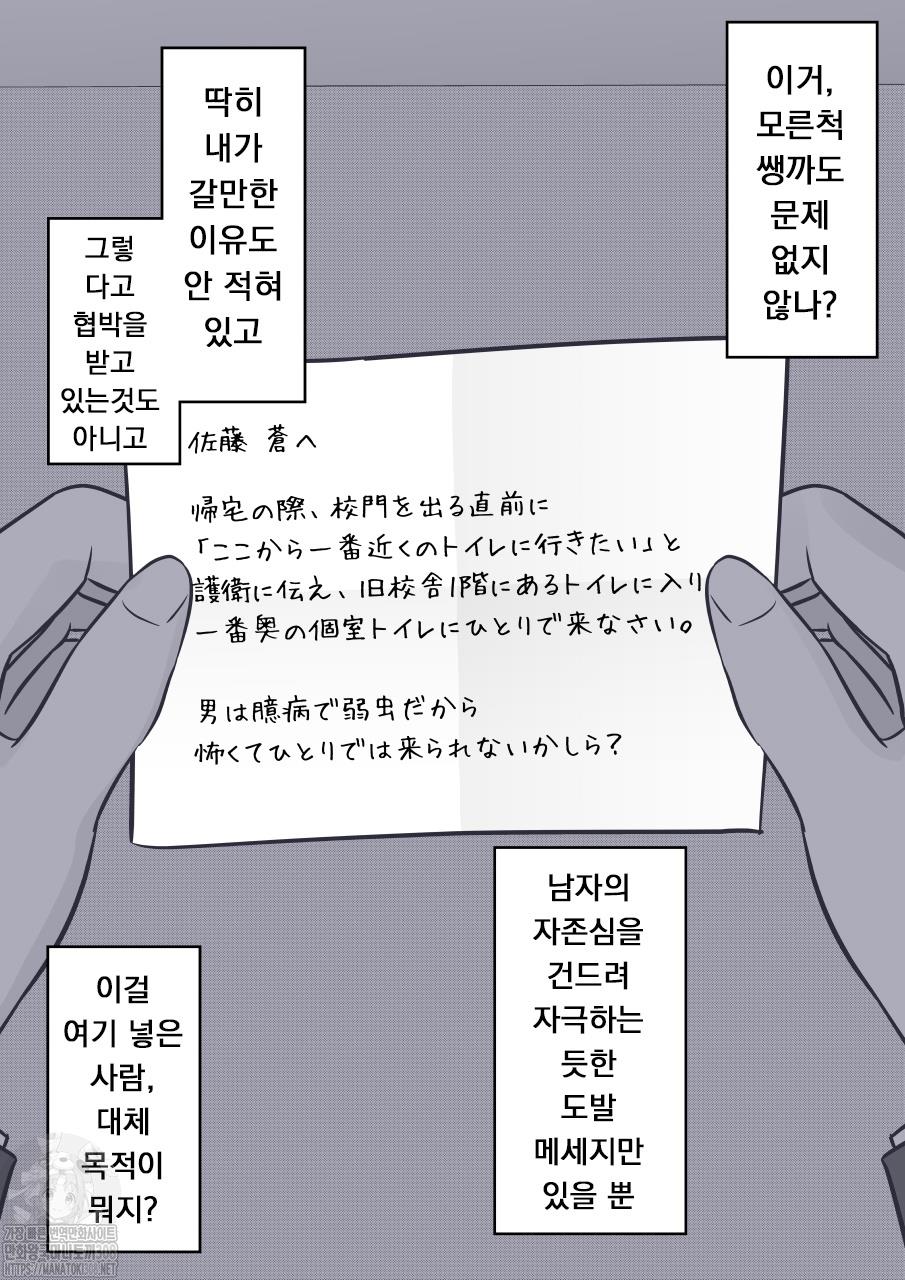 이거,
모른척
쌩까도
문제
없지
않나?
딱히
내가
갈만한
이유도
안 적혀
있고
그렇
다고
협박을
받고
있는것도
아니고
佐藤 蒼へ
帰宅の際、校門を出る直前に
「ここから一番近くのトイレに行きたい」と
護衛に伝え、旧校舎1階にあるトイレに入り
一番奥の個室トイレにひとりで来なさい。
男は臆病で弱虫だから
怖くてひとりでは来られないかしら？
남자의
자존심을
건드려
자극하는
듯한
도발
메세지만
있을 뿐
이걸
여기 넣은
사람,
대체
목적이
뭐지?
가장 빠른 번역만화사이트
만화왕국마나토끼308
HTTPS://MANATOKI308.NET